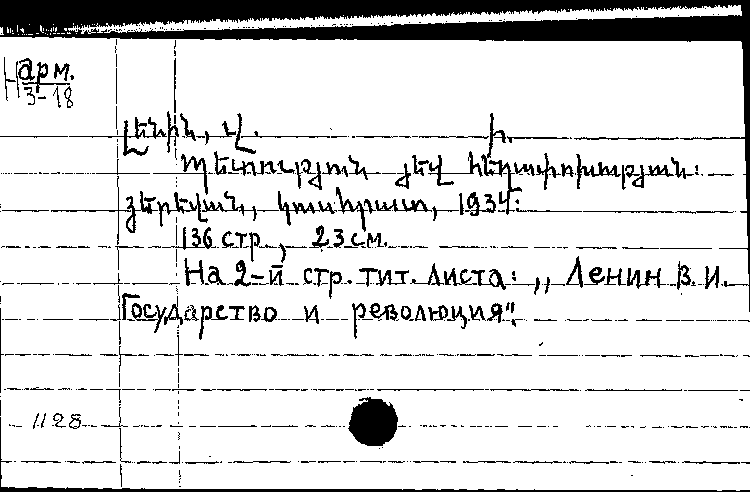 Н арм.
3-18
Լենին, Վ. Ի.
Պետություն յեվ հեղափոխություն:
Յերեվան, կուսհրատ, 1934:
136 стр., 23 см.
На 2-й стр. тит. листа: ,, Ленин В. И.
Государство и революция".
1128